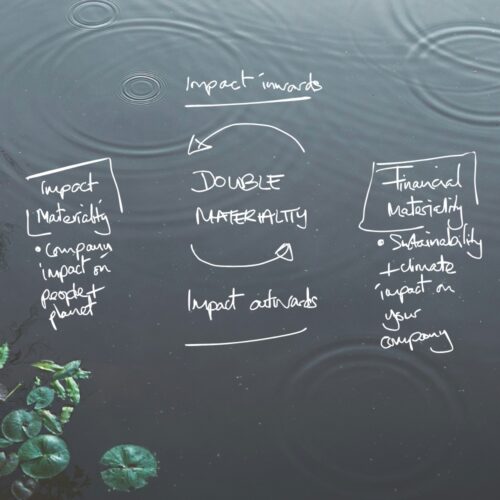 Impact inwards
Impact
Materiality
• Company
impact on
people +
planet
DOUBLE
MATERIALITY
Impact outwards
Financial
Materiality
• Sustainability
+ climate
impact on
your
company